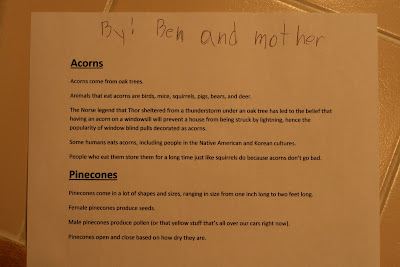 By: Ben and mother
Acorns
Acorns come from oak trees.
Animals that eat acorns are birds, mice, squirrels, pigs, bears, and deer.
The Norse legend that Thor sheltered from a thunderstorm under an oak tree has led to the belief that
having an acorn on a windowsill will prevent a house from being struck by lightning, hence the
popularity of window blind pulls decorated as acorns.
Some humans eats acorns, including people in the Native American and Korean cultures.
People who eat them store them for a long time just like squirrels do because acorns don't go bad.
Pinecones
Pinecones come in a lot of shapes and sizes, ranging in size from one inch long to two feet long.
Female pinecones produce seeds.
Male pinecones produce pollen (or that yellow stuff that's all over our cars right now).
Pinecones open and close based on how dry they are.